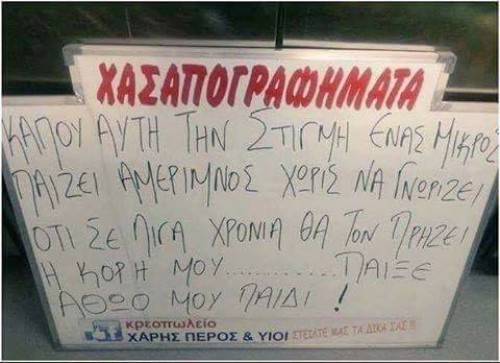 ΧΑΣΑΠΟΓΡΑΦΗΜΑΤΑ
ΚΑΠΟΥ ΑΥΤΗ ΤΗΝ ΣΤΙΓΜΗ ΕΝΑΣ ΜΙΚΡΟΣ
ΠΑΙΖΕΙ ΑΜΕΡΙΜΝΟΣ ΧΩΡΙΣ ΝΑ ΓΝΩΡΙΖΕΙ
ΟΤΙ ΣΕ ΛΙΓΑ ΧΡΟΝΙΑ ΘΑ ΤΟΝ ΠΡΗΖΕΙ
Η ΚΟΡΗ ΜΟΥ.......... ΠΑΙΞΕ
ΑΘΩΟ ΜΟΥ ΠΑΙΔΙ !
κρεοπωλείο
ΧΑΡΗΣ ΠΕΡΟΣ & ΥΙΟΙ ΣΤΕΙΛΤΕ ΜΑΣ ΤΑ ΔΙΚΑ ΣΑΣ !!!